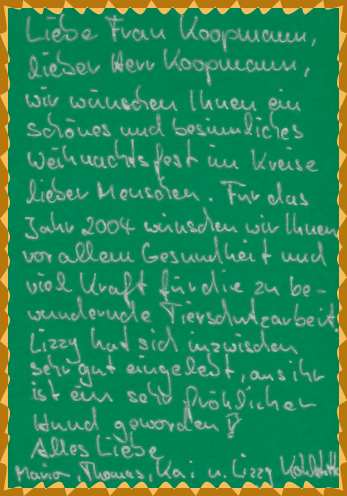 Liebe Frau Koopmann,
lieber Herr Koopmann,
wir wünschen Ihnen ein
schönes und besinnliches
Weihnachtsfest im Kreise
lieber Menschen. Für das
Jahr 2004 wünschen wir Ihnen
vor allem Gesundheit und
viel Kraft für die zu be-
wundernde Tierschutzarbeit.
Lizzy hat sich inzwischen
sehr gut eingelebt, aus ihr
ist ein sehr fröhlicher
Hund geworden!
Alles Liebe
Marion, Thomas, Kai u. Lizzy